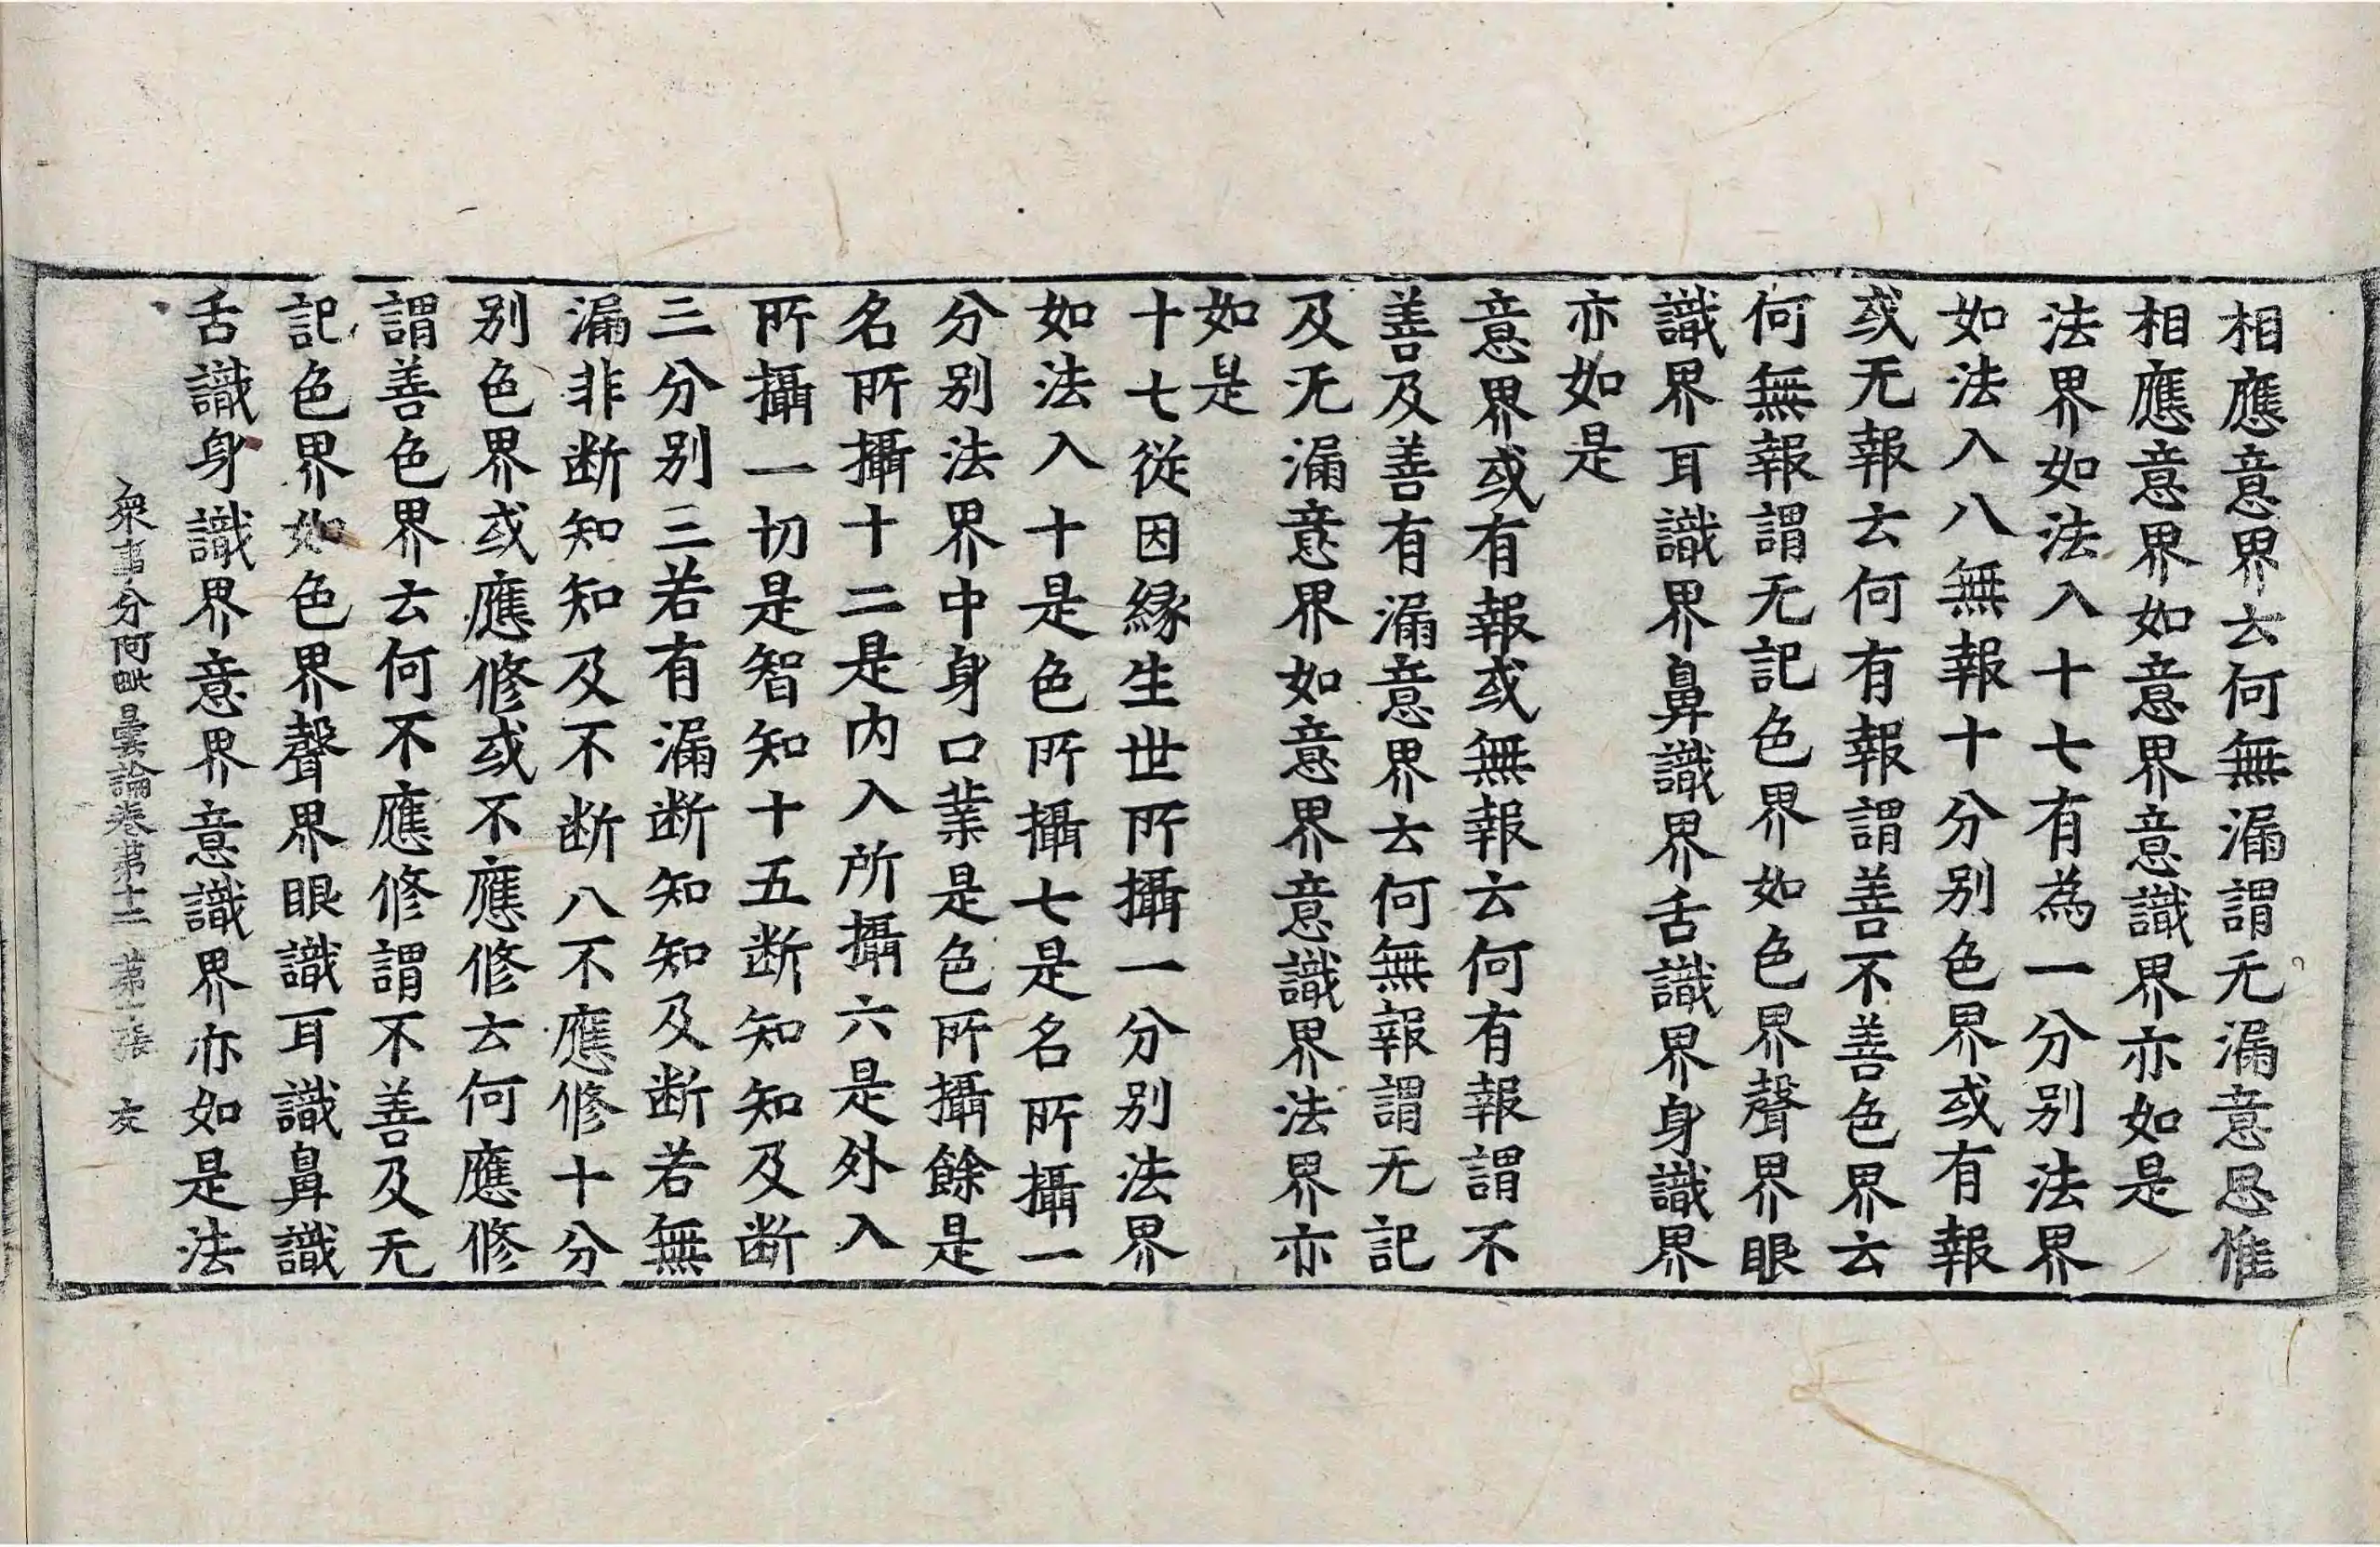 相應意界云何無漏謂无漏意思惟
相應意界如意界意識界亦如是
法界如法入十七有為一分別法界
如法入八無報十分別色界或有報
或无報云何有報謂善不善色界云
何無報謂无記色界如色界聲界眼
識界耳識界鼻識界舌識界身識界
亦如是
意界或有報或無報云何有報謂不
善及善有漏意界云何無報謂无記
及无漏意界如意界意識界法界亦
如是
十七從因緣生世所攝一分別法界
如法入十是色所攝七是名所攝一
分別法界中身口業是色所攝餘是
名所攝十二是內入所攝六是外入
所攝一切是智知十五断知知及断
三分別三若有漏断知知及断若無
漏非断知知及不断八不應修十分
別色界或應修或不應修云何應修
謂善色界云何不應修謂不善及无
記色界如色界聲界眼識耳識鼻識
舌識身識界意界意識界亦如是法
衆事分阿毗曇論卷苐十二 苐 張 友